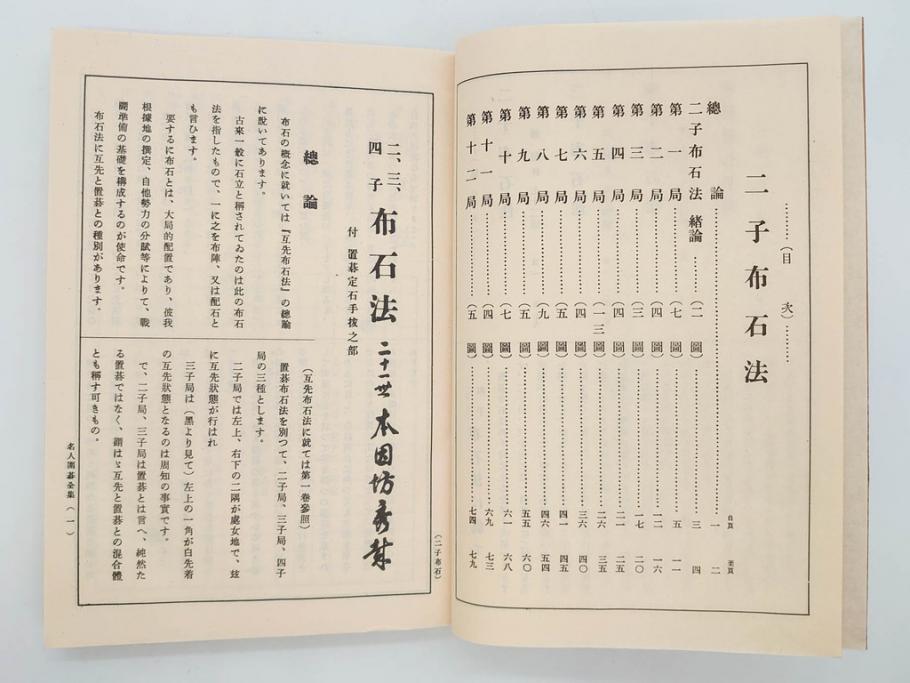 二子布石法
(目次)
自頁 至頁
總論 一 二
二子布石法 緒論 (二圖) 三 四
第一局 (七圖) 五 一一
第二局 (四圖) 一二 一六
第三局 (三圖) 一七 二〇
第四局 (四圖) 二一 二五
第五局 (一三圖) 二六 三五
第六局 (四圖) 三六 四〇
第七局 (五圖) 四一 四五
第八局 (九圖) 四六 五四
第九局 (五圖) 五五 六〇
第十局 (七圖) 六一 六八
第十一局 (四圖) 六九 七三
第十二局 (五圖) 七四 七九
(二子布石)
二、三、四子布石法 二十一世本因坊秀哉
付 置碁定石手拔之部
總論
布石の概念に就いては『互先布石法』の總論
に說いてあります。
古來一般に石立と稱されてゐたのは此の布石
法を指したもので、一に之を布陣、又は配石と
も言ひます。
要するに布石とは、大局的配置であり、彼我
根據地の撰定、自他勢力の分賦等によりて、戰
鬪準備の基礎を構成するのが使命です。
布石法に互先と置碁との種別があります。
(互先布石法に就ては第一卷參照)
置碁布石法を別つて、二子局、三子局、四子
局の三種とします。
二子局では左上、右下の二隅が處女地で、玆
に互先狀態が行はれ
三子局は(黑より見て)左上の一角が白先着
の互先狀態となるのは周知の事實です。
で、二子局、三子局は置碁とは言へ、純然た
る置碁ではなく、謂はゞ互先と置碁との混合體
とも稱す可きもの。
名人圍碁全集(一)